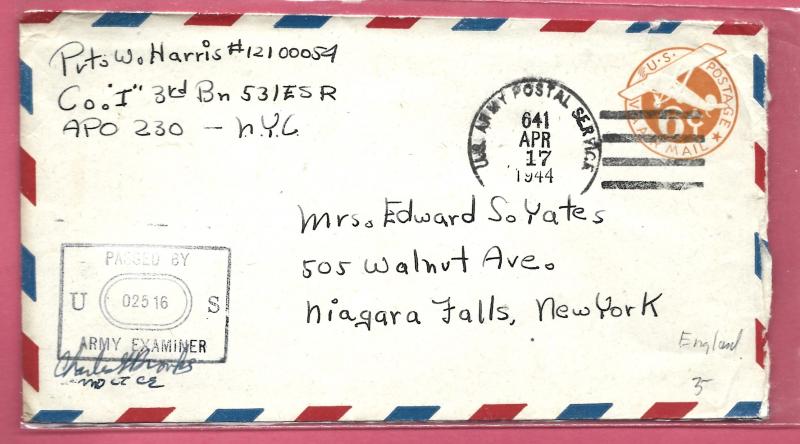 Pvt. W. Harris #12100054
Co. "I" 3rd Bn 531 ESR
APO 230 — N.Y.C.
U.S. POSTAGE
6¢
VIA AIR MAIL
U.S. ARMY POSTAL SERVICE
641
APR
17
1944
Mrs. Edward S. Yates
505 Walnut Ave.
Niagara Falls, New York
PASSED BY
U 02516 S
ARMY EXAMINER
Charles
England
35